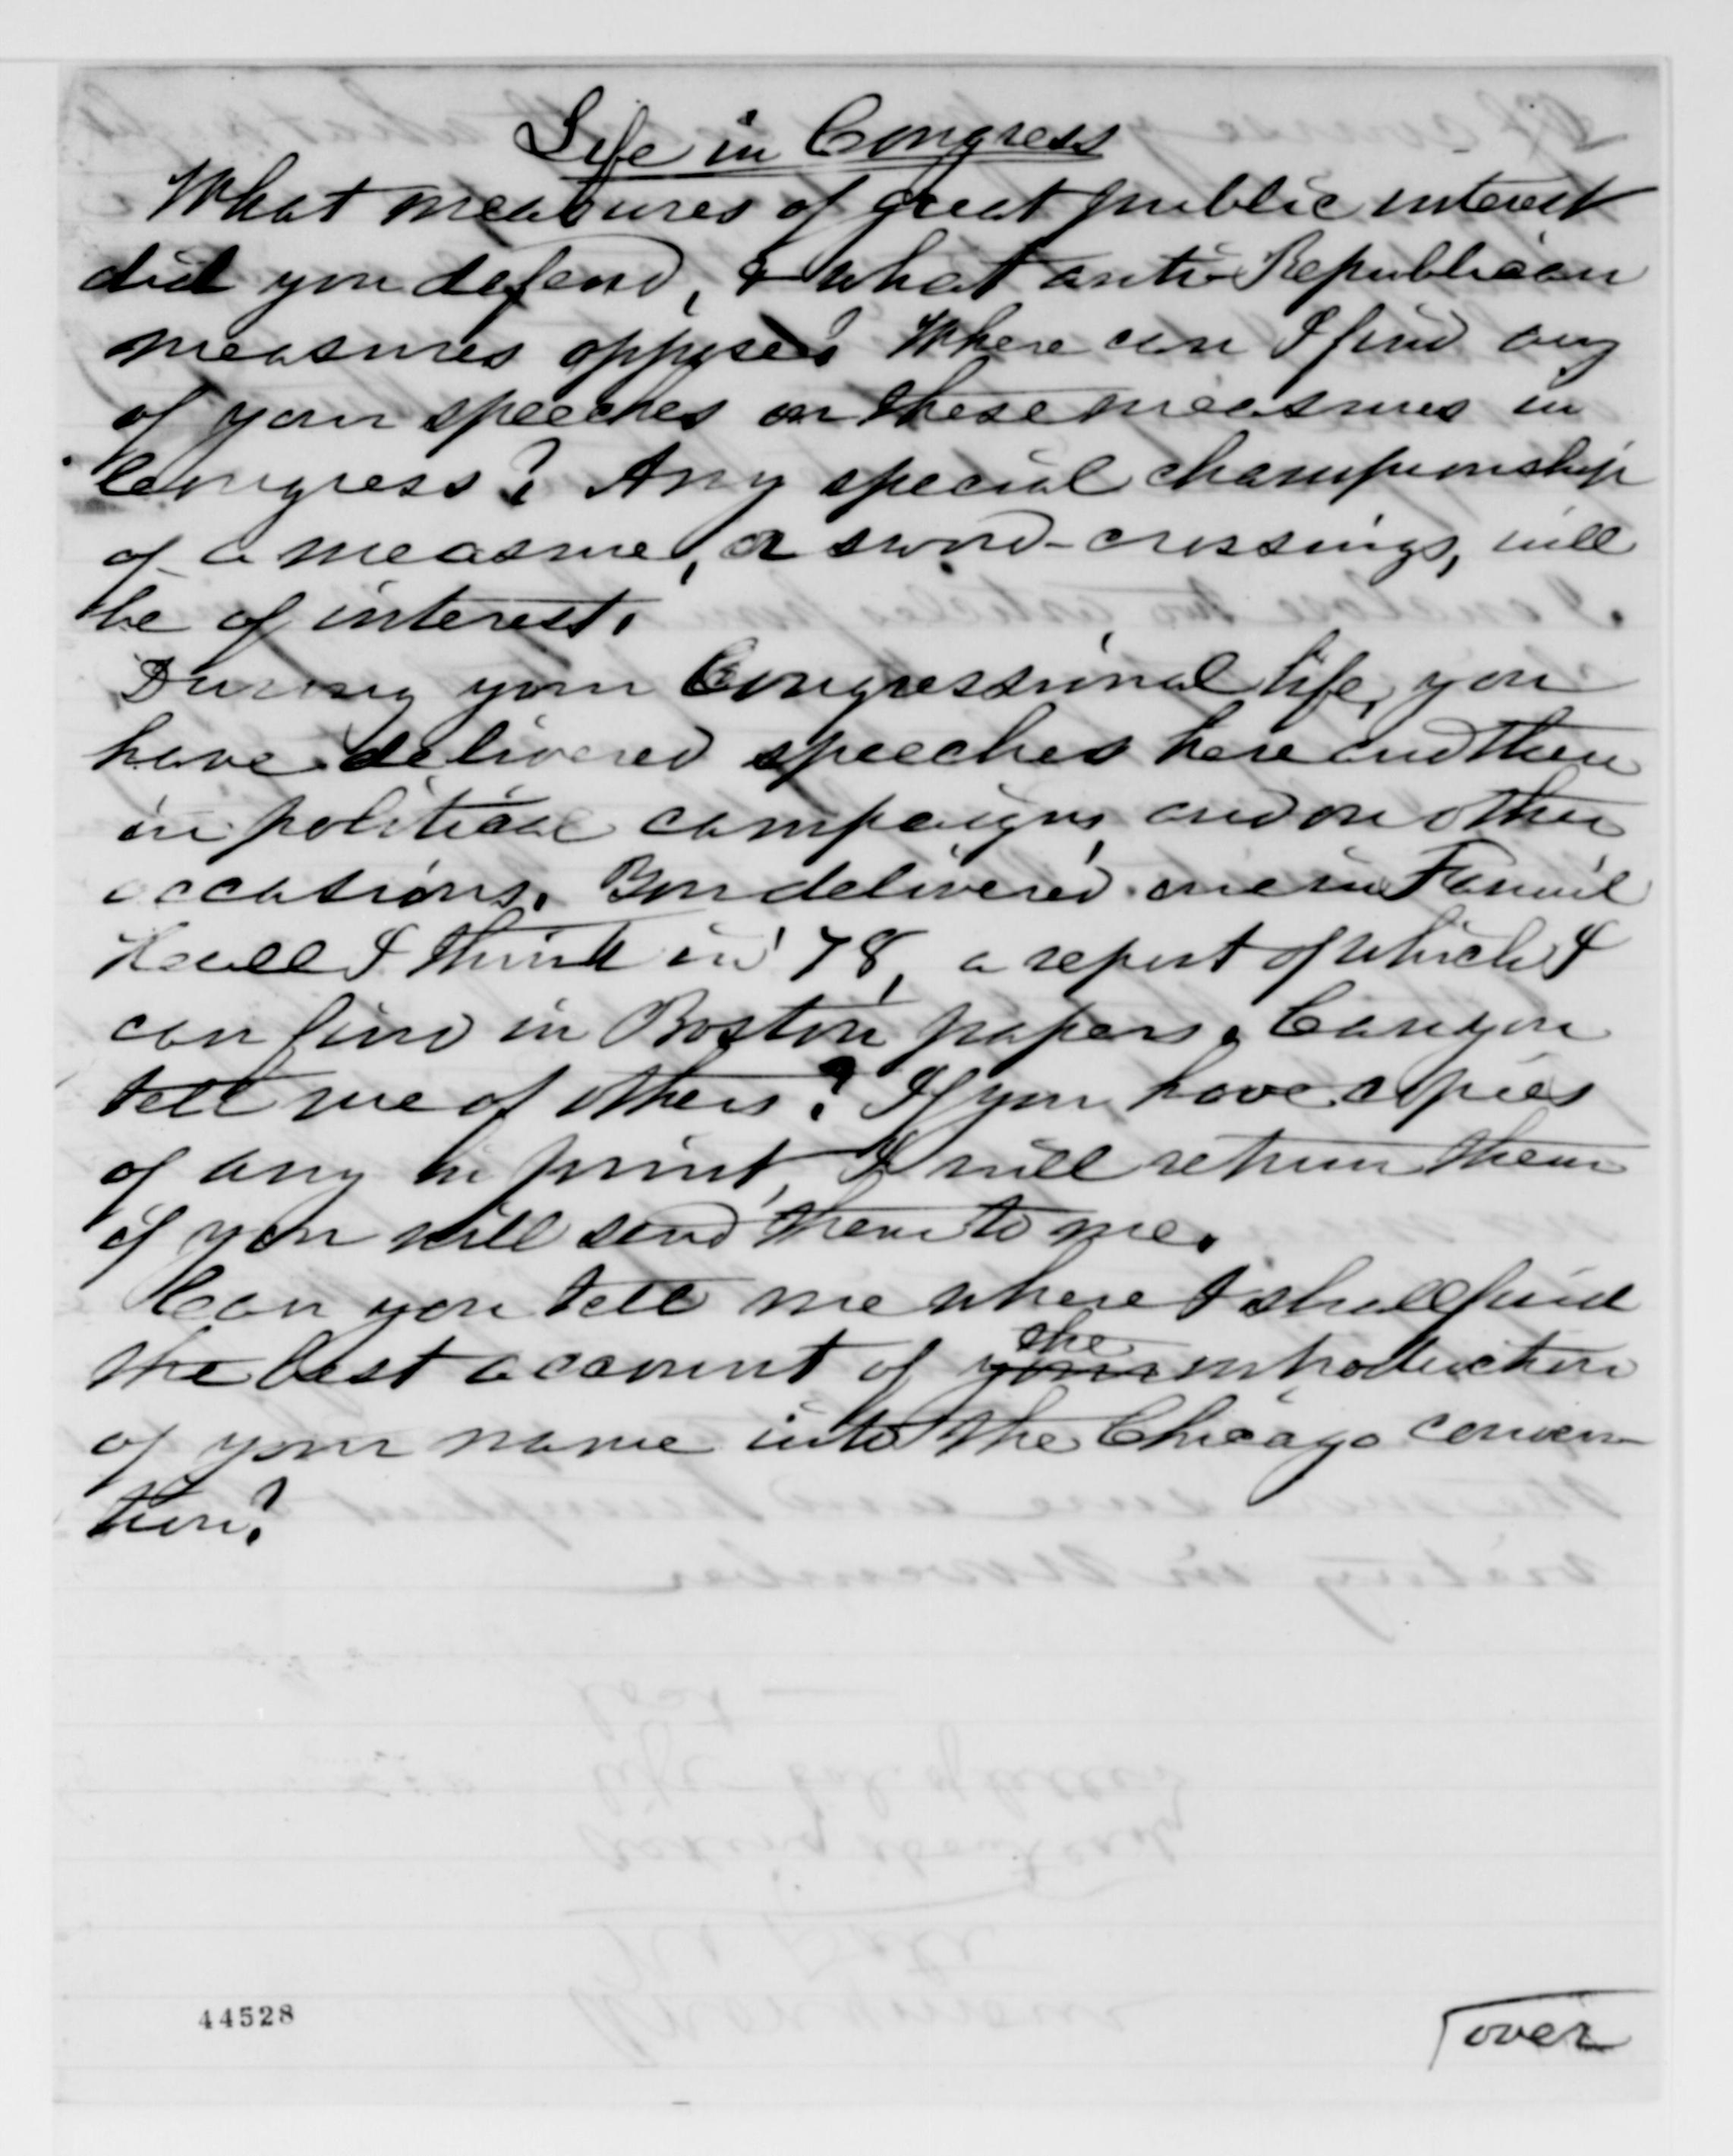 Life in Congress
What measures of great public interest
did you defend, & what anti-Republican
measures oppose? Where can I find any
of your speeches on these measures in
Congress? Any special championship
of a measure, or sword-crossings, will
be of interest.
During your Congressional life, you
have delivered speeches here and there
in political campaigns and on other
occasions. You delivered one in Faneuil
Hall I think in '78, a report of which I
can find in Boston papers. Can you
tell me of others? If you have copies
of any in print, I will return them
if you will send them to me.
Can you tell me where I shall find
the best account of your the introduction
of your name into the Chicago conven-
tion?
44528
over